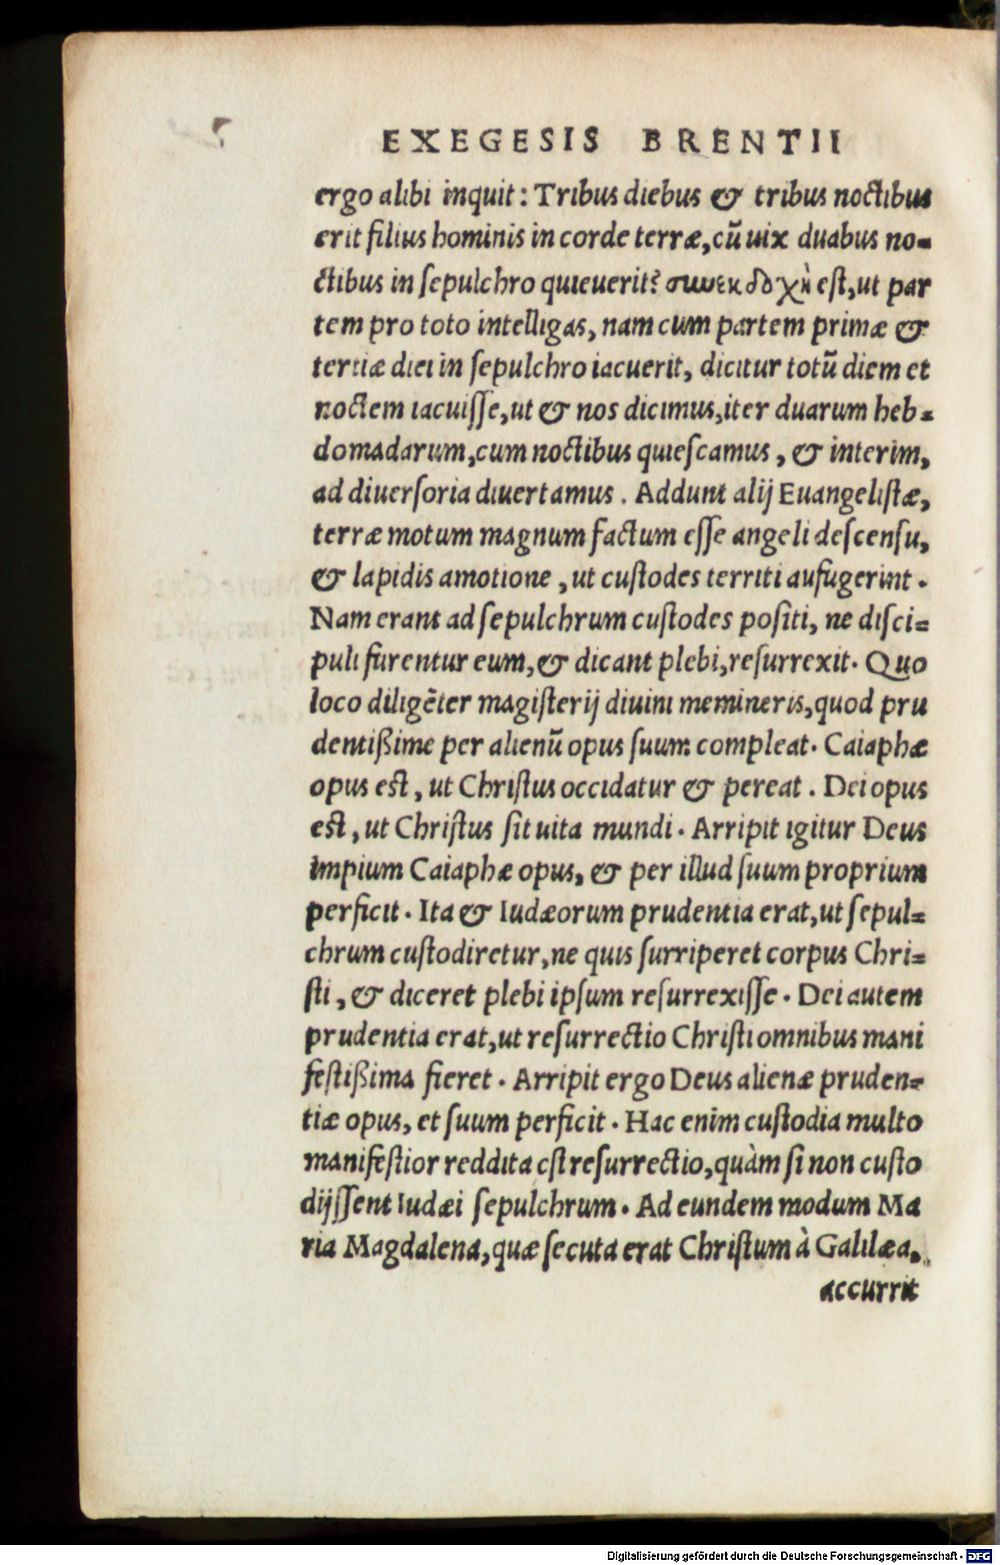 EXEGESIS BRENTII
ergo alibi inquit: Tribus diebus & tribus noctibus
erit filius hominis in corde terræ, cũ uix duabus no-
ctibus in sepulchro quieuerit? συνεκδοχὴ est, ut par
tem pro toto intelligas, nam cum partem primæ &
tertiæ diei in sepulchro iacuerit, dicitur totũ diem et
noctem iacuisse, ut & nos dicimus, iter duarum heb-
domadarum, cum noctibus quiescamus, & interim,
ad diuersoria diuertamus. Addunt alij Euangelistæ,
terræ motum magnum factum esse angeli descensu,
& lapidis amotione, ut custodes territi aufugerint.
Nam erant ad sepulchrum custodes positi, ne disci-
puli furentur eum, & dicant plebi, resurrexit. Quo
loco diligẽter magisterij diuini memineris, quod pru
dentißime per alienũ opus suum compleat. Caiaphæ
opus est, ut Christus occidatur & pereat. Dei opus
est, ut Christus sit uita mundi. Arripit igitur Deus
impium Caiaphæ opus, & per illud suum proprium
perficit. Ita & Iudæorum prudentia erat, ut sepul-
chrum custodiretur, ne quis surriperet corpus Chri-
sti, & diceret plebi ipsum resurrexisse. Dei autem
prudentia erat, ut resurrectio Christi omnibus mani
festißima fieret. Arripit ergo Deus alienæ pruden-
tiæ opus, et suum perficit. Hac enim custodia multo
manifestior reddita est resurrectio, quàm si non custo
dijssent Iudæi sepulchrum. Ad eundem modum Ma
ria Magdalena, quæ secuta erat Christum à Galilæa,
accurrit
Digitalisierung gefördert durch die Deutsche Forschungsgemeinschaft - DFG